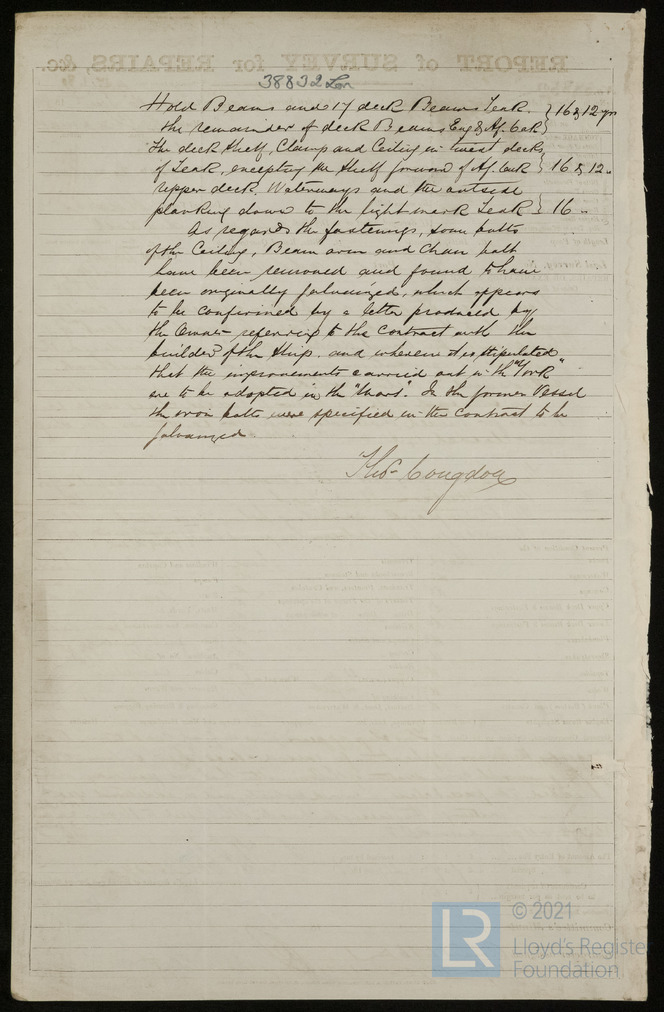 38832 Lon
Hold Beams and 17 deck Beams Teak. } 16 & 12 yrs
the remainder of deck Beams Eng & Af. Oak }
The deck Shelf, Clamp and Ceiling in twixt decks
of Teak, excepting the Shelf forward of Af. Oak } 16 & 12 "
upper deck. Waterways and the outside
planking down to the light mark Teak } 16 "
As regards the fastenings, some bolts
of the Ceiling, Beam arm and Chain bolts
have been removed and found to have
been originally galvanized, which appears
to be confirmed by a letter produced by
the Owner referring to the Contract with the
builder of the Ship, and wherein it is stipulated
that the improvements carried out in the "York"
are to be adopted in the In the former Vessel
the iron bolts were specified in the Contract to be
galvanized
Thos. Congdon
© 2021
Lloyd's Register
Foundation
LR
REPORT of SURVEY for REPAIRS, &c.